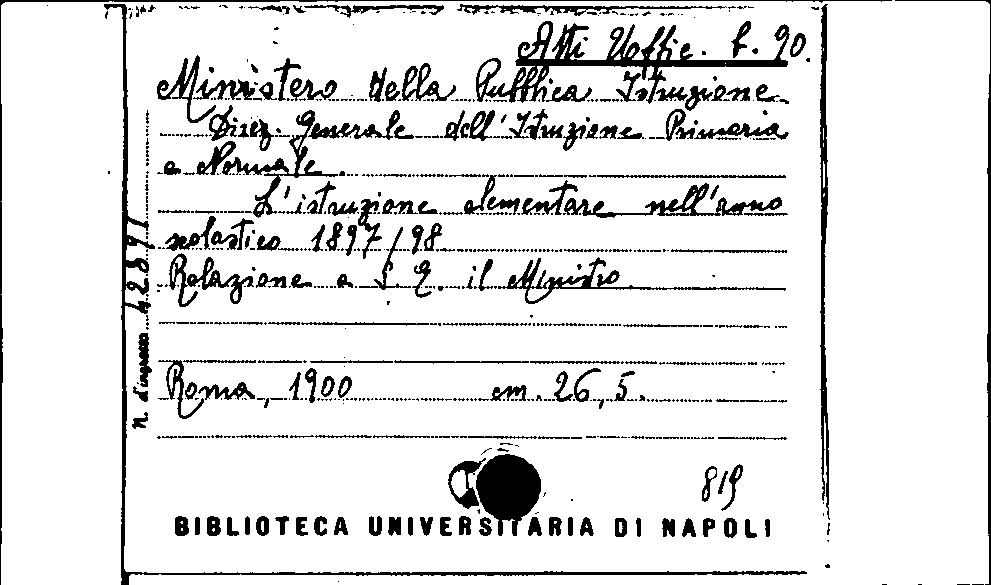 Atti Uffic. b. 90.
Ministero della Pubblica Istruzione
Direz. Generale dell'Istruzione Primaria
e Normale.
L'istruzione elementare nell'anno
scolastico 1897/98
Relazione a S. E. il Ministro
Roma, 1900 cm. 26,5.
N. d'ingresso 42891
819
BIBLIOTECA UNIVERSITARIA DI NAPOLI